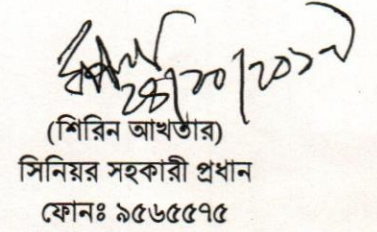 ২৪/১০/২০১৭
(শিরিন আখতার)
সিনিয়র সহকারী প্রধান
ফোনঃ ৯৫৬৫৫৭৫